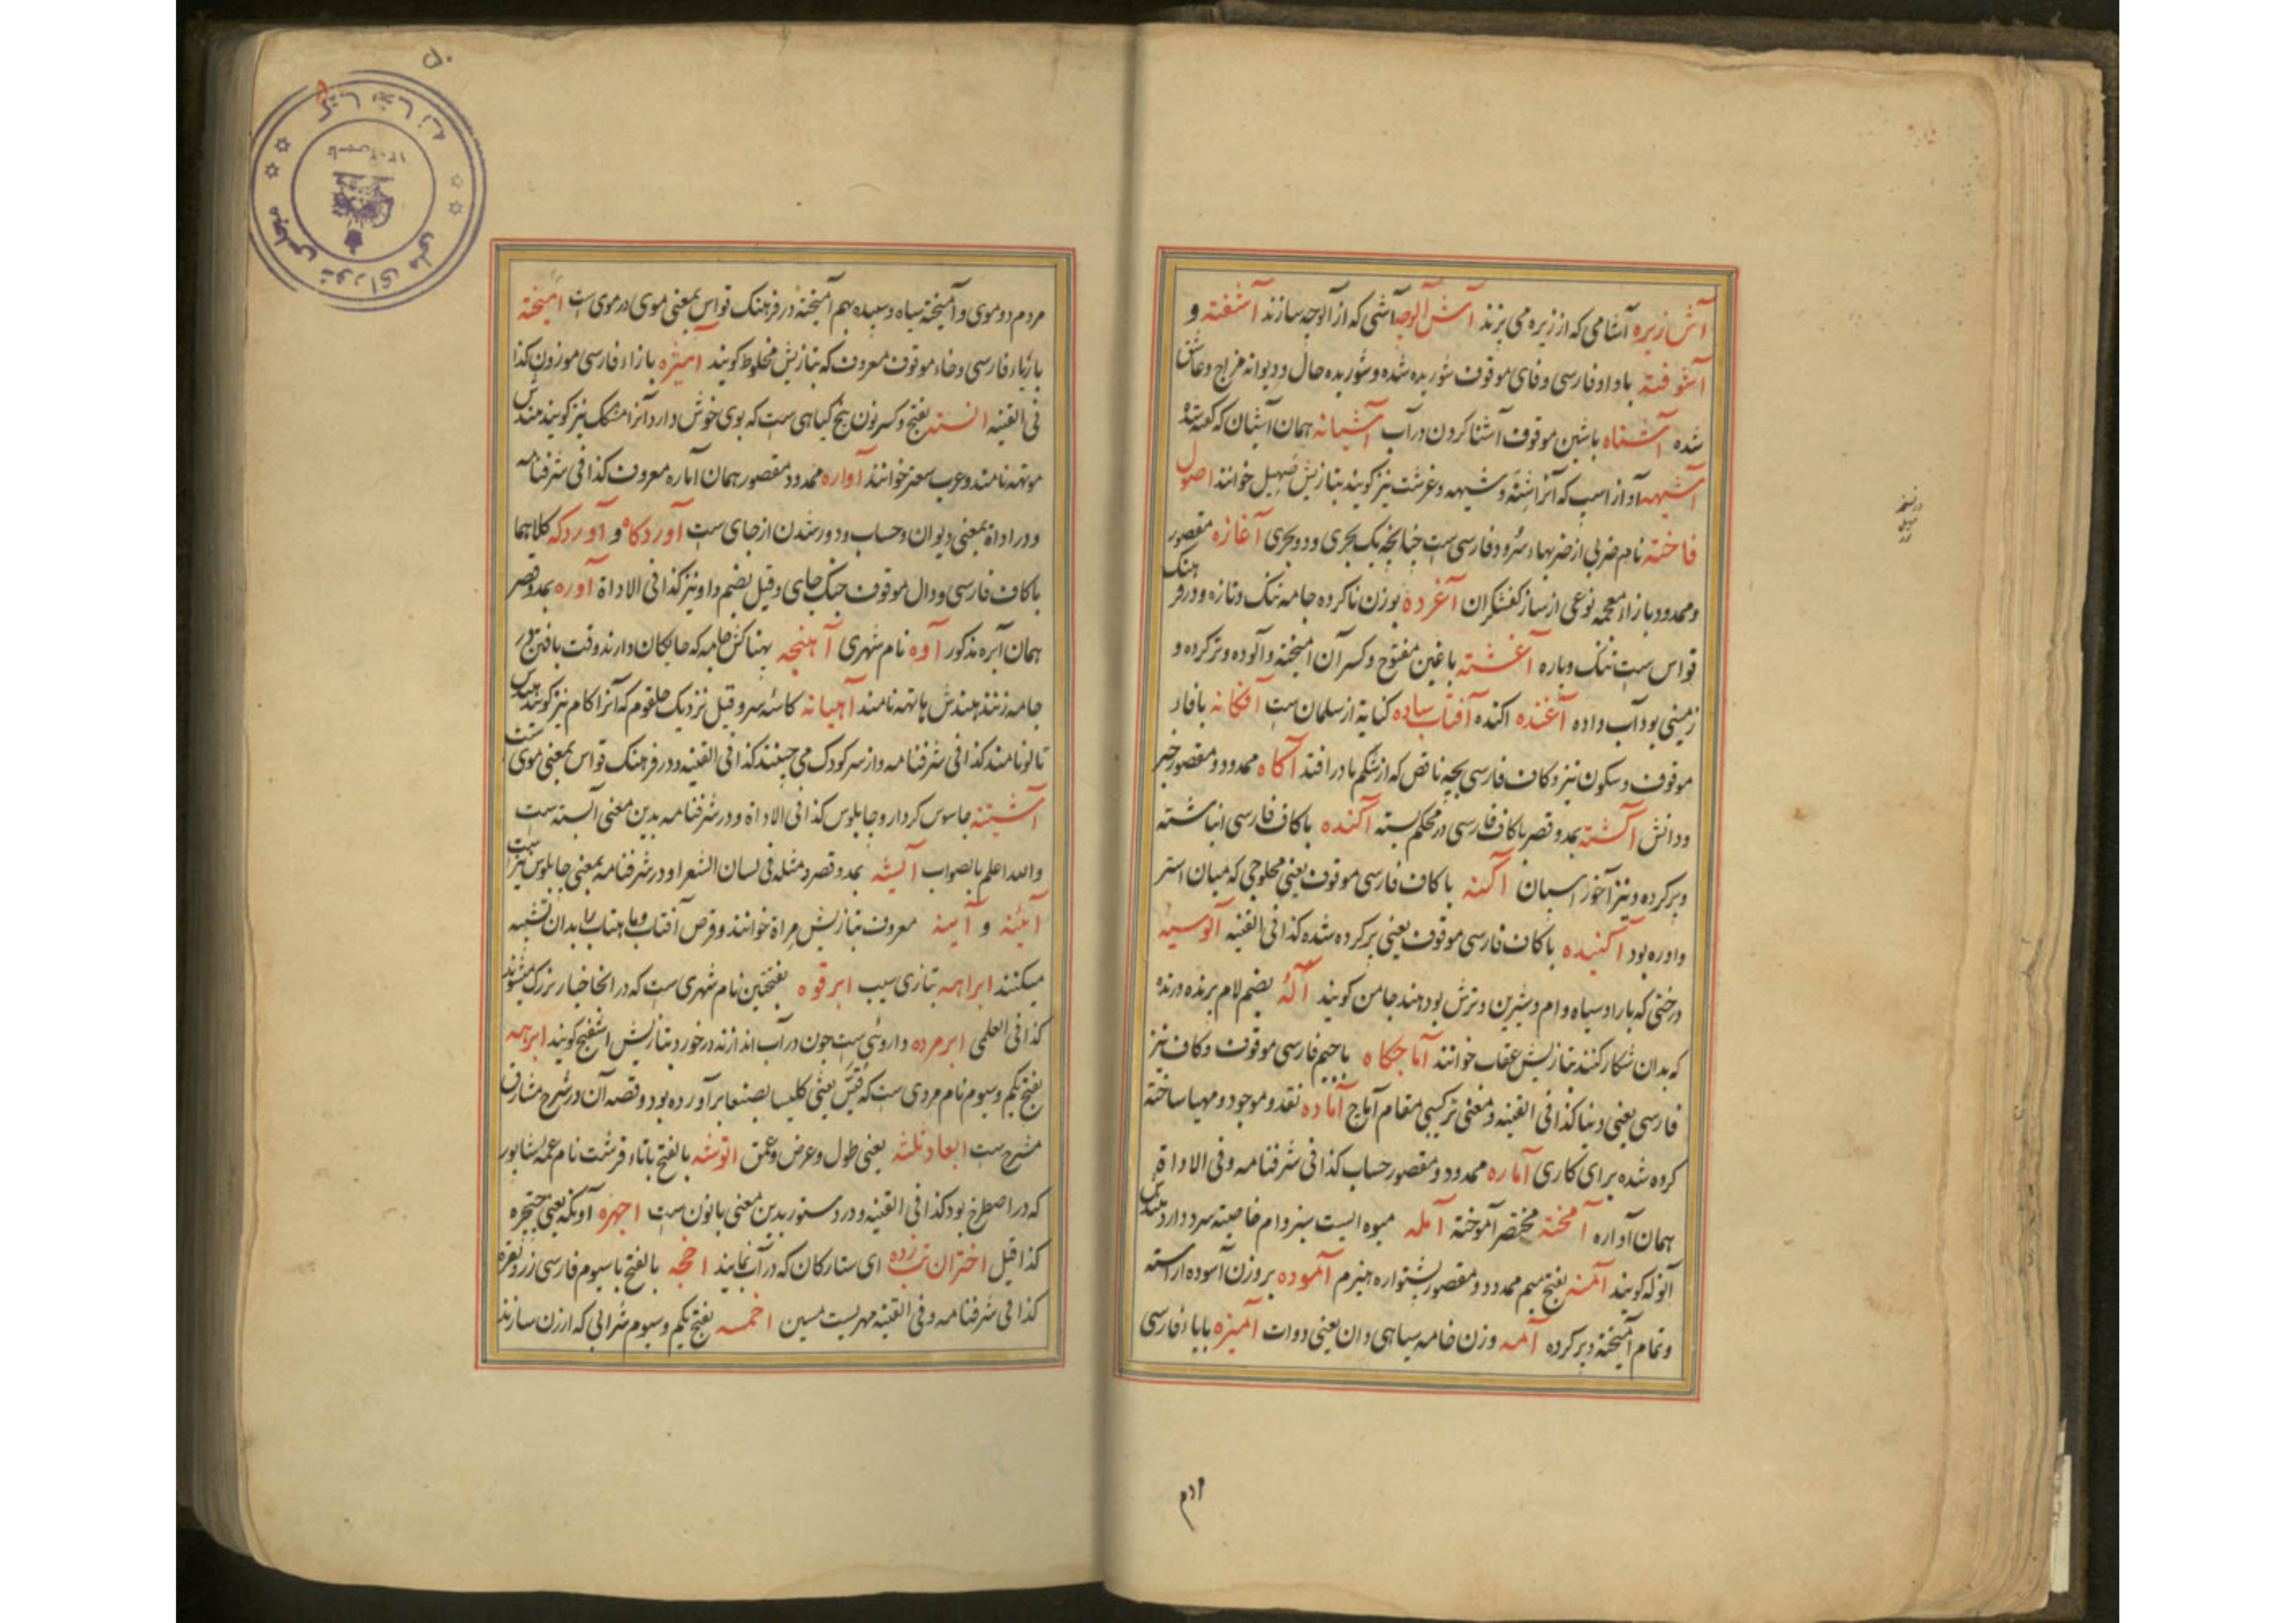 آش زیره آشامی که از زیره می پزند آش آلوچه آشی که از آلوچه سازند آشفته و
آشوفته باواو فارسی و فای موقوف شوریده شده و شوریده حال و دیوانه مزاج و عاشق
شده آشناه باشین موقوف آشنا کردن در آب آشیانه همان آشیان که گفته شد
آشیهه آواز اسپ که آنرا شنه و شیهه و غرشت نیز گویند بتازیش صهیل خوانند اصول
فاخته نام ضربی از ضربهاء سرود فارسی ست چنانچه یک بحری و دو بحری آغازه مقصور
و ممدود بازاء معجمه نوعی از ساز کفشگران آغرده بوزن ناکرده جامه تنک و تازه و در فرهنک
قواس ست تنک و باره آغشته باغین مفتوح و کسر آن آمیخته و آلوده و تر کرده و
زمینی بود آب داده آغنده اکنده آفتاب سیاده کنایة از سلمان ست آفکانه بافاء
موقوف و سکون نیز و کاف فارسی بچه ناقص که از شکم مادر افتد آکاه ممدود و مقصور خبر
و دانش آکشته بمد و قصر باکاف فارسی در محکم بسته آکنده باکاف فارسی انباشته
و پر کرده و نیز آخور اسپان آکنه باکاف فارسی موقوف یعنی محلوجی که میان استر
و اوره بود آکنیده باکاف فارسی موقوف یعنی پر کرده شده کذا فی القنیه آلوسیه
درختی که بار او سیاه وام و شیرین و ترش بود هند جامن گویند آله بضم لام پرنده درنده
که بدان شکار کنند بتازیش عقاب خوانند آماجکاه باجیم فارسی موقوف و کاف نیز
فارسی یعنی دنیا کذا فی القنیه و معنی ترکیبی مقام آماج آماده نقد و موجود و مهیا ساخته
کرده شده برای کاری آماره ممدود و مقصور حساب کذا فی شرفنامه و فی الاداة
همان آواره آمخته مختصر آموخته آمله میوه ایست سبز وام خاصیته سرد دارد هندش
آنوله گویند آمنه بفتح میم ممدود و مقصور پشتواره هیزم آموده بر وزن آسوده آراسته
و تمام آمیخته و پر کرده آمه وزن خامه سیاهی دان یعنی دوات آمیزه بایاء فارسی
ادم
مردم دوموی و آمیخته سیاه و سپیده بهم آمیخته در فرهنک قواس بمعنی موی در موی ست آمیخته
بایاء فارسی و خاء موقوف معروف که بتازیش مخلوط گویند آمیژه بازاء فارسی موزون کذا
فی القنیه انسته بفتح و کسر نون بیخ گیاهی ست که بوی خوش دارد آنرا مشک نیز گویند هندش
موتهه نامند و عرب سعتر خوانند آواره ممدود و مقصور همان آماره معروف کذا فی شرفنامه
و در اداة بمعنی دیوان و حساب و دور شدن از جای ست آوردکاه و آوردکه کلاهما
باکاف فارسی و دال موقوف جنک جای و قیل بضم واو نیز کذا فی الاداة آوره بمد و قصر
همان آبره مذکور آوه نام شهری آهنجه پهناکش جامه که جایکان دارند وقت بافتن در
جامه زنند هندش پانتهه نامند آهیانه کاسه سر و قیل نزدیک حلقوم که آنرا کام نیز گویند هندش
تالو نامند کذا فی شرفنامه و از سر کودک می جنبد کذا فی القنیه و در فرهنک قواس بمعنی موی ست
آشینه جاسوس کردار و چاپلوس کذا فی الاداة و در شرفنامه بدین معنی آبسته ست
و الله اعلم بالصواب آیشه بمد و قصر و مثله فی لسان الشعرا و در شرفنامه بمعنی چاپلوس نیز ست
آیئنه و آینه معروف بتازیش مراة خوانند و قرص آفتاب و ماهتاب را بدان تشبیه
میکنند ابراهمه بتازی سیب ابرقوه بفتحتین نام شهری ست که در آنجا خیار بزرک میشوند
کذا فی العلمی ابرمرده داروئی ست چون در آب اندازند در خورد بتازیش اسفنج گویند ابرهه
بفتح یکم و سیوم نام مردی ست که قلیس یعنی کلیسا بصنعا برآورده بود و قصه آن در شرح مشارق
مشرح ست ابعاد ثلثه یعنی طول و عرض و عمق اتوشه بالفتح باتاء قرشت نام عمه شاپور
که در اصطرخ بود کذا فی القنیه و در دستور بدین معنی بانون ست اجهره آونکه یعنی حنجره
کذا قیل اختران تب زده ای ستارکان که در آب نمایند اخچه بالفتح باسیوم فارسی زر و نقره
کذا فی شرفنامه و فی القنیه مهریست مسین اخمسه بفتح یکم و سیوم شرابی که ارزن سازند